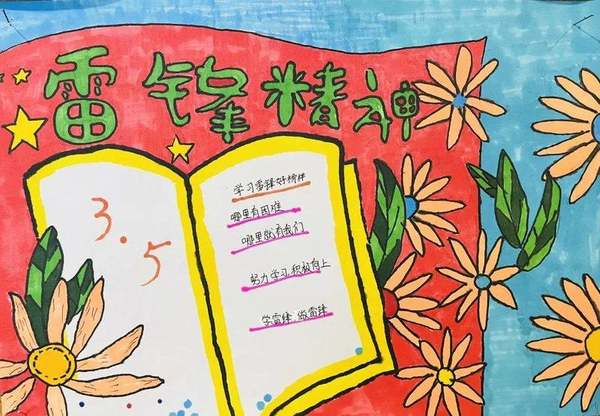 雷锋精神
3.5
学习雷锋好榜样
哪里有困难
哪里就有我们
努力学习积极向上
学雷锋,做雷锋